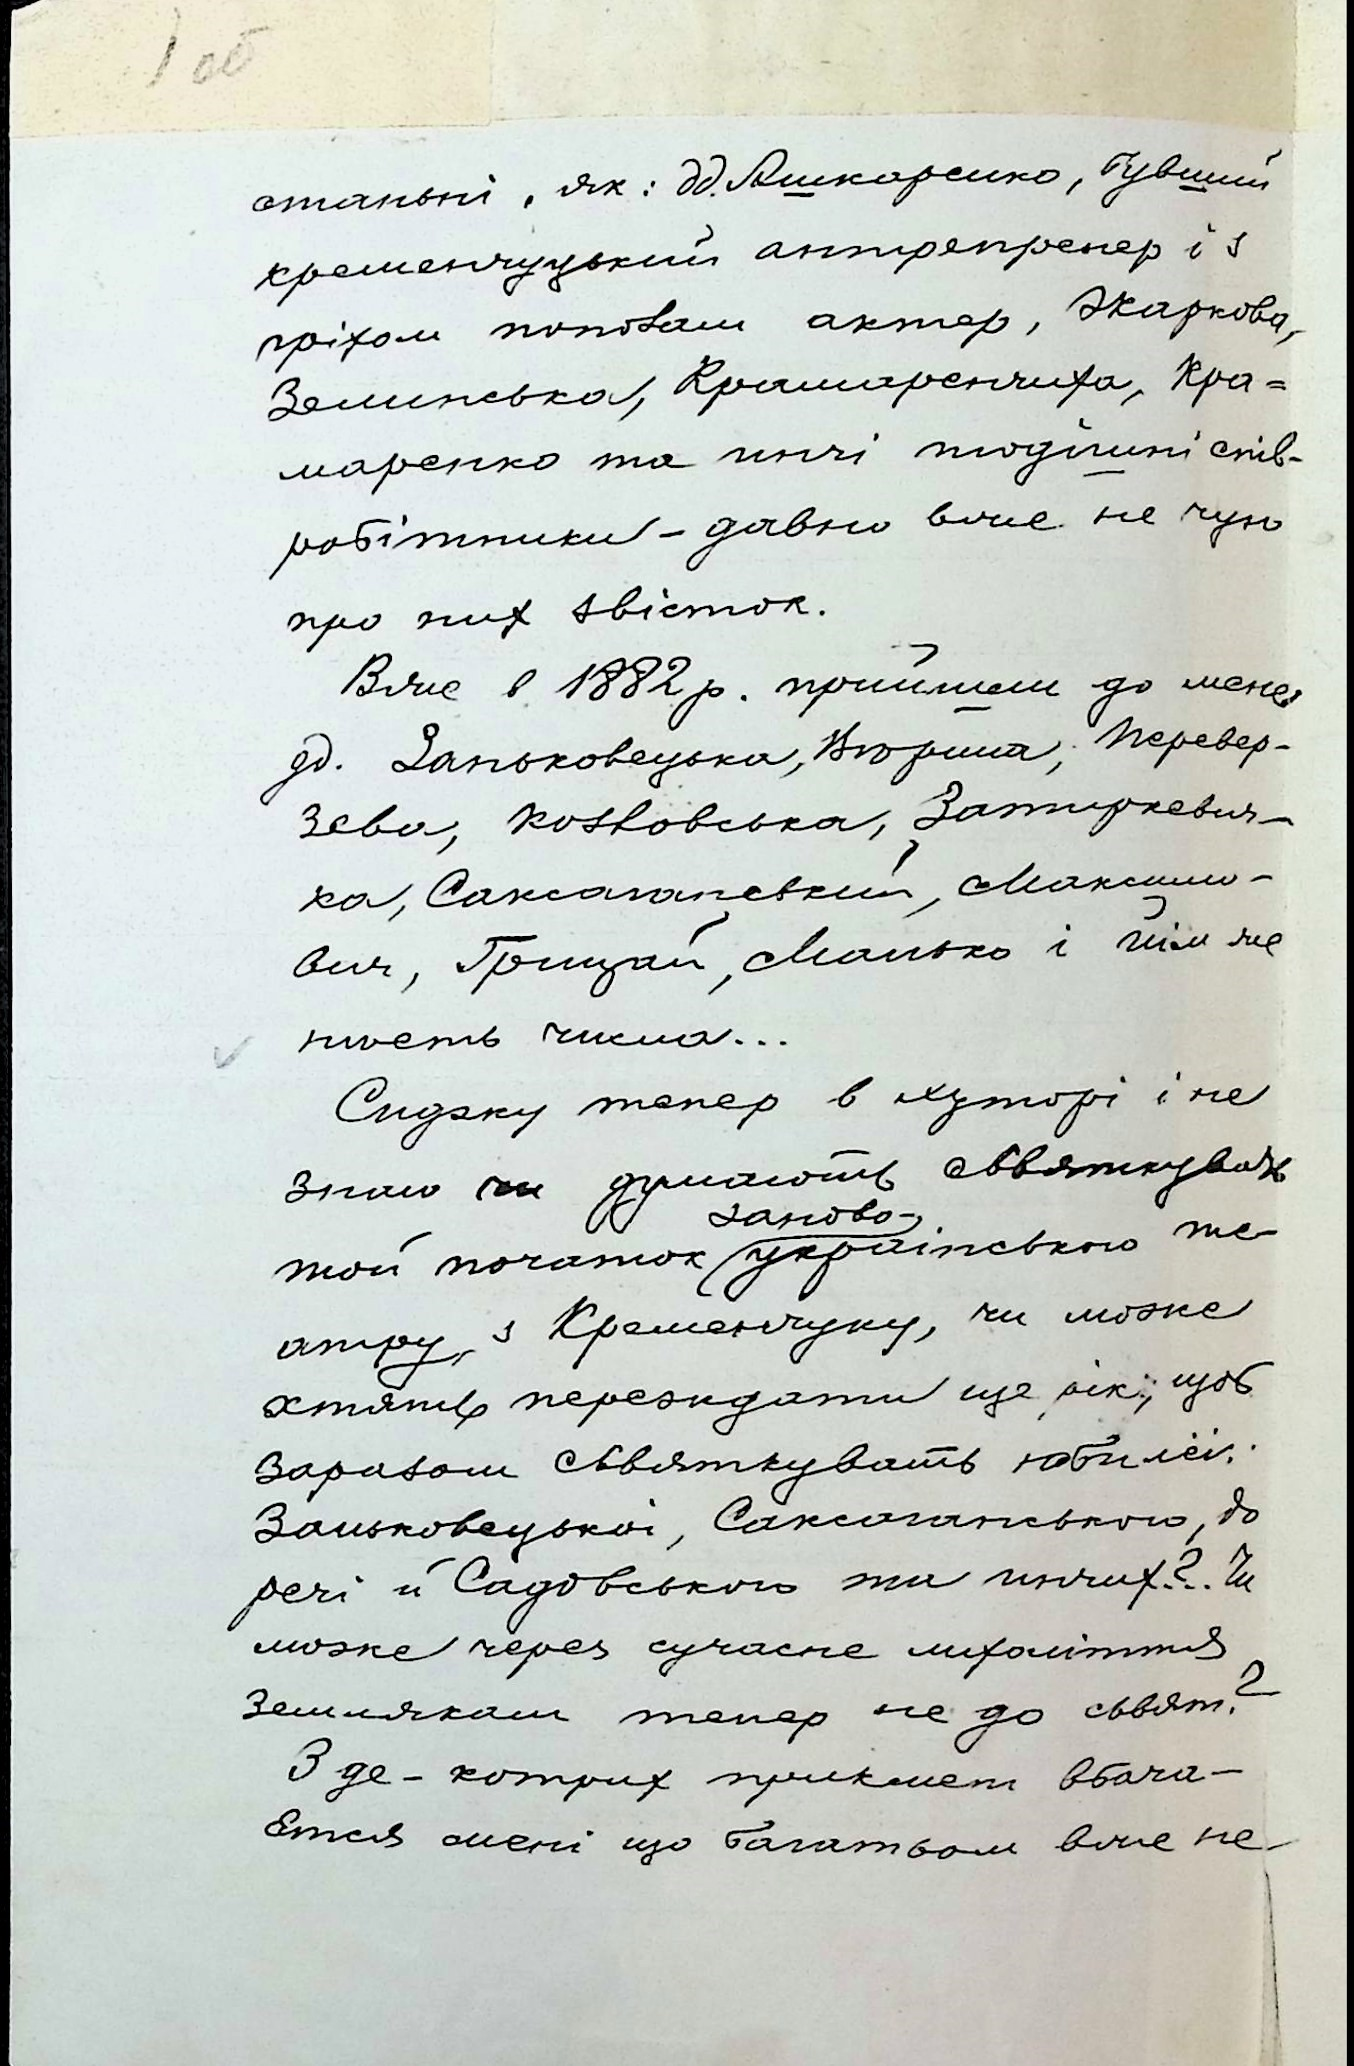 1 об
станьні, як: дд. Ашкаренко, бувший
кременчуцький антрепренер і з
гріхом пополам актер, Жаркова,
Зелинська, Крамаренчиха, Кра=
маренко та инчі тодішні спів-
робітники – давно вже не чую
про них звісток.
Вже в 1882 р. прийшли до мене
дд. Заньковецька, Вірина, Перевер-
зева, Козловська, Затиркевич-
ка, Саксаганський, Максимо-
вич, Грицай, Манько і йім же
нѣсть числа...
Сиджу тепер в хуторі і не
знаю чи думають сьвяткувать
заново-
той початок українського те-
атру з Кременчуку, чи може
хтять переждати ще рік, щоб
заразом сьвяткувать юбилеі:
Заньковецькоі, Саксаганського, до
речі й Садовського та инчих?.. Чи
може через сучасне лихоліття
землякам тепер не до сьвят?
З де-котрих прикмет вбача-
ється мені що багатьом вже не